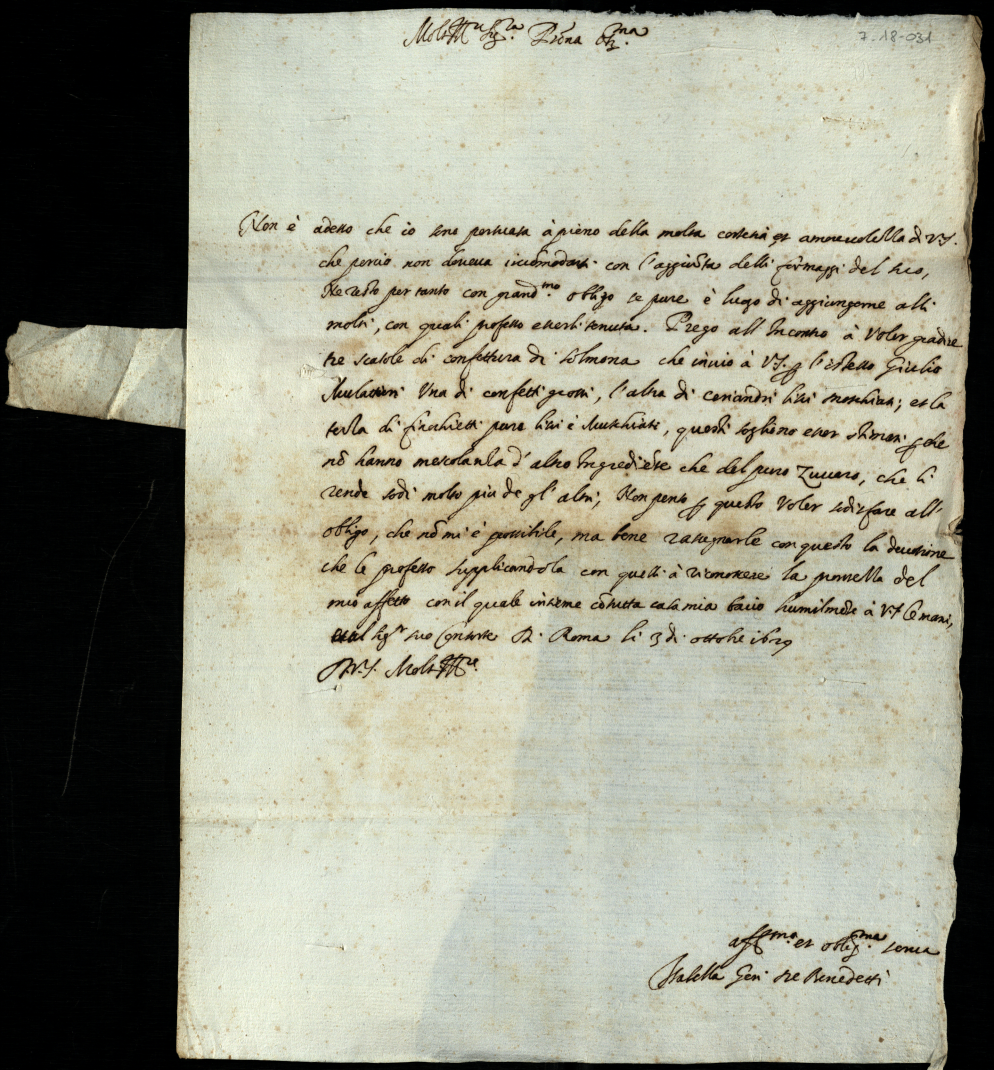 7.18-031
Molt Ill.re Sig.ra P.rona Oss.ma
Non è adesso che io sono persuasa à pieno della molta cortesia et amorevolezza di V.S.
che perciò non doveva incōmodarsi con l'aggiūta delli formaggi del suo,
Ne resto per tanto con grand.mo obligo se pure è luogo di aggiungerne alli
molti, con quali professo esserli tenuta. Prego all'Incontro à Voler gradire
tre scatole di confettura di Solmona che invio à V.S. p l'istesso Giulio
Mulattieri Una di confetti grossi, l'altra di coriandri lisi moschiati; et la
terza di finochietti pure lisi è Muschiati, questi sogliono esser stimati p che
nō hanno mescolanza d'altro Ingrediēte che del puro Zuccaro, che li
rende sodi molto più de gl'altri; Non penso p questo Voler sodisfare all'
obligo, che nō mi è possibile, ma bene rassegnarle con questo la devotione
che le professo supplicandola con questi à riconoscere la purezza del
mio affetto con il quale insieme cō tutta casa mia bacio humilmēte à V.S. le mani,
al Sig.r suo Consorte Di Roma li 3 di ottobre 1629
Di V.S. Molt Ill.re
aff.ma et oblig.ma serva
Isabella Geri de Benedetti